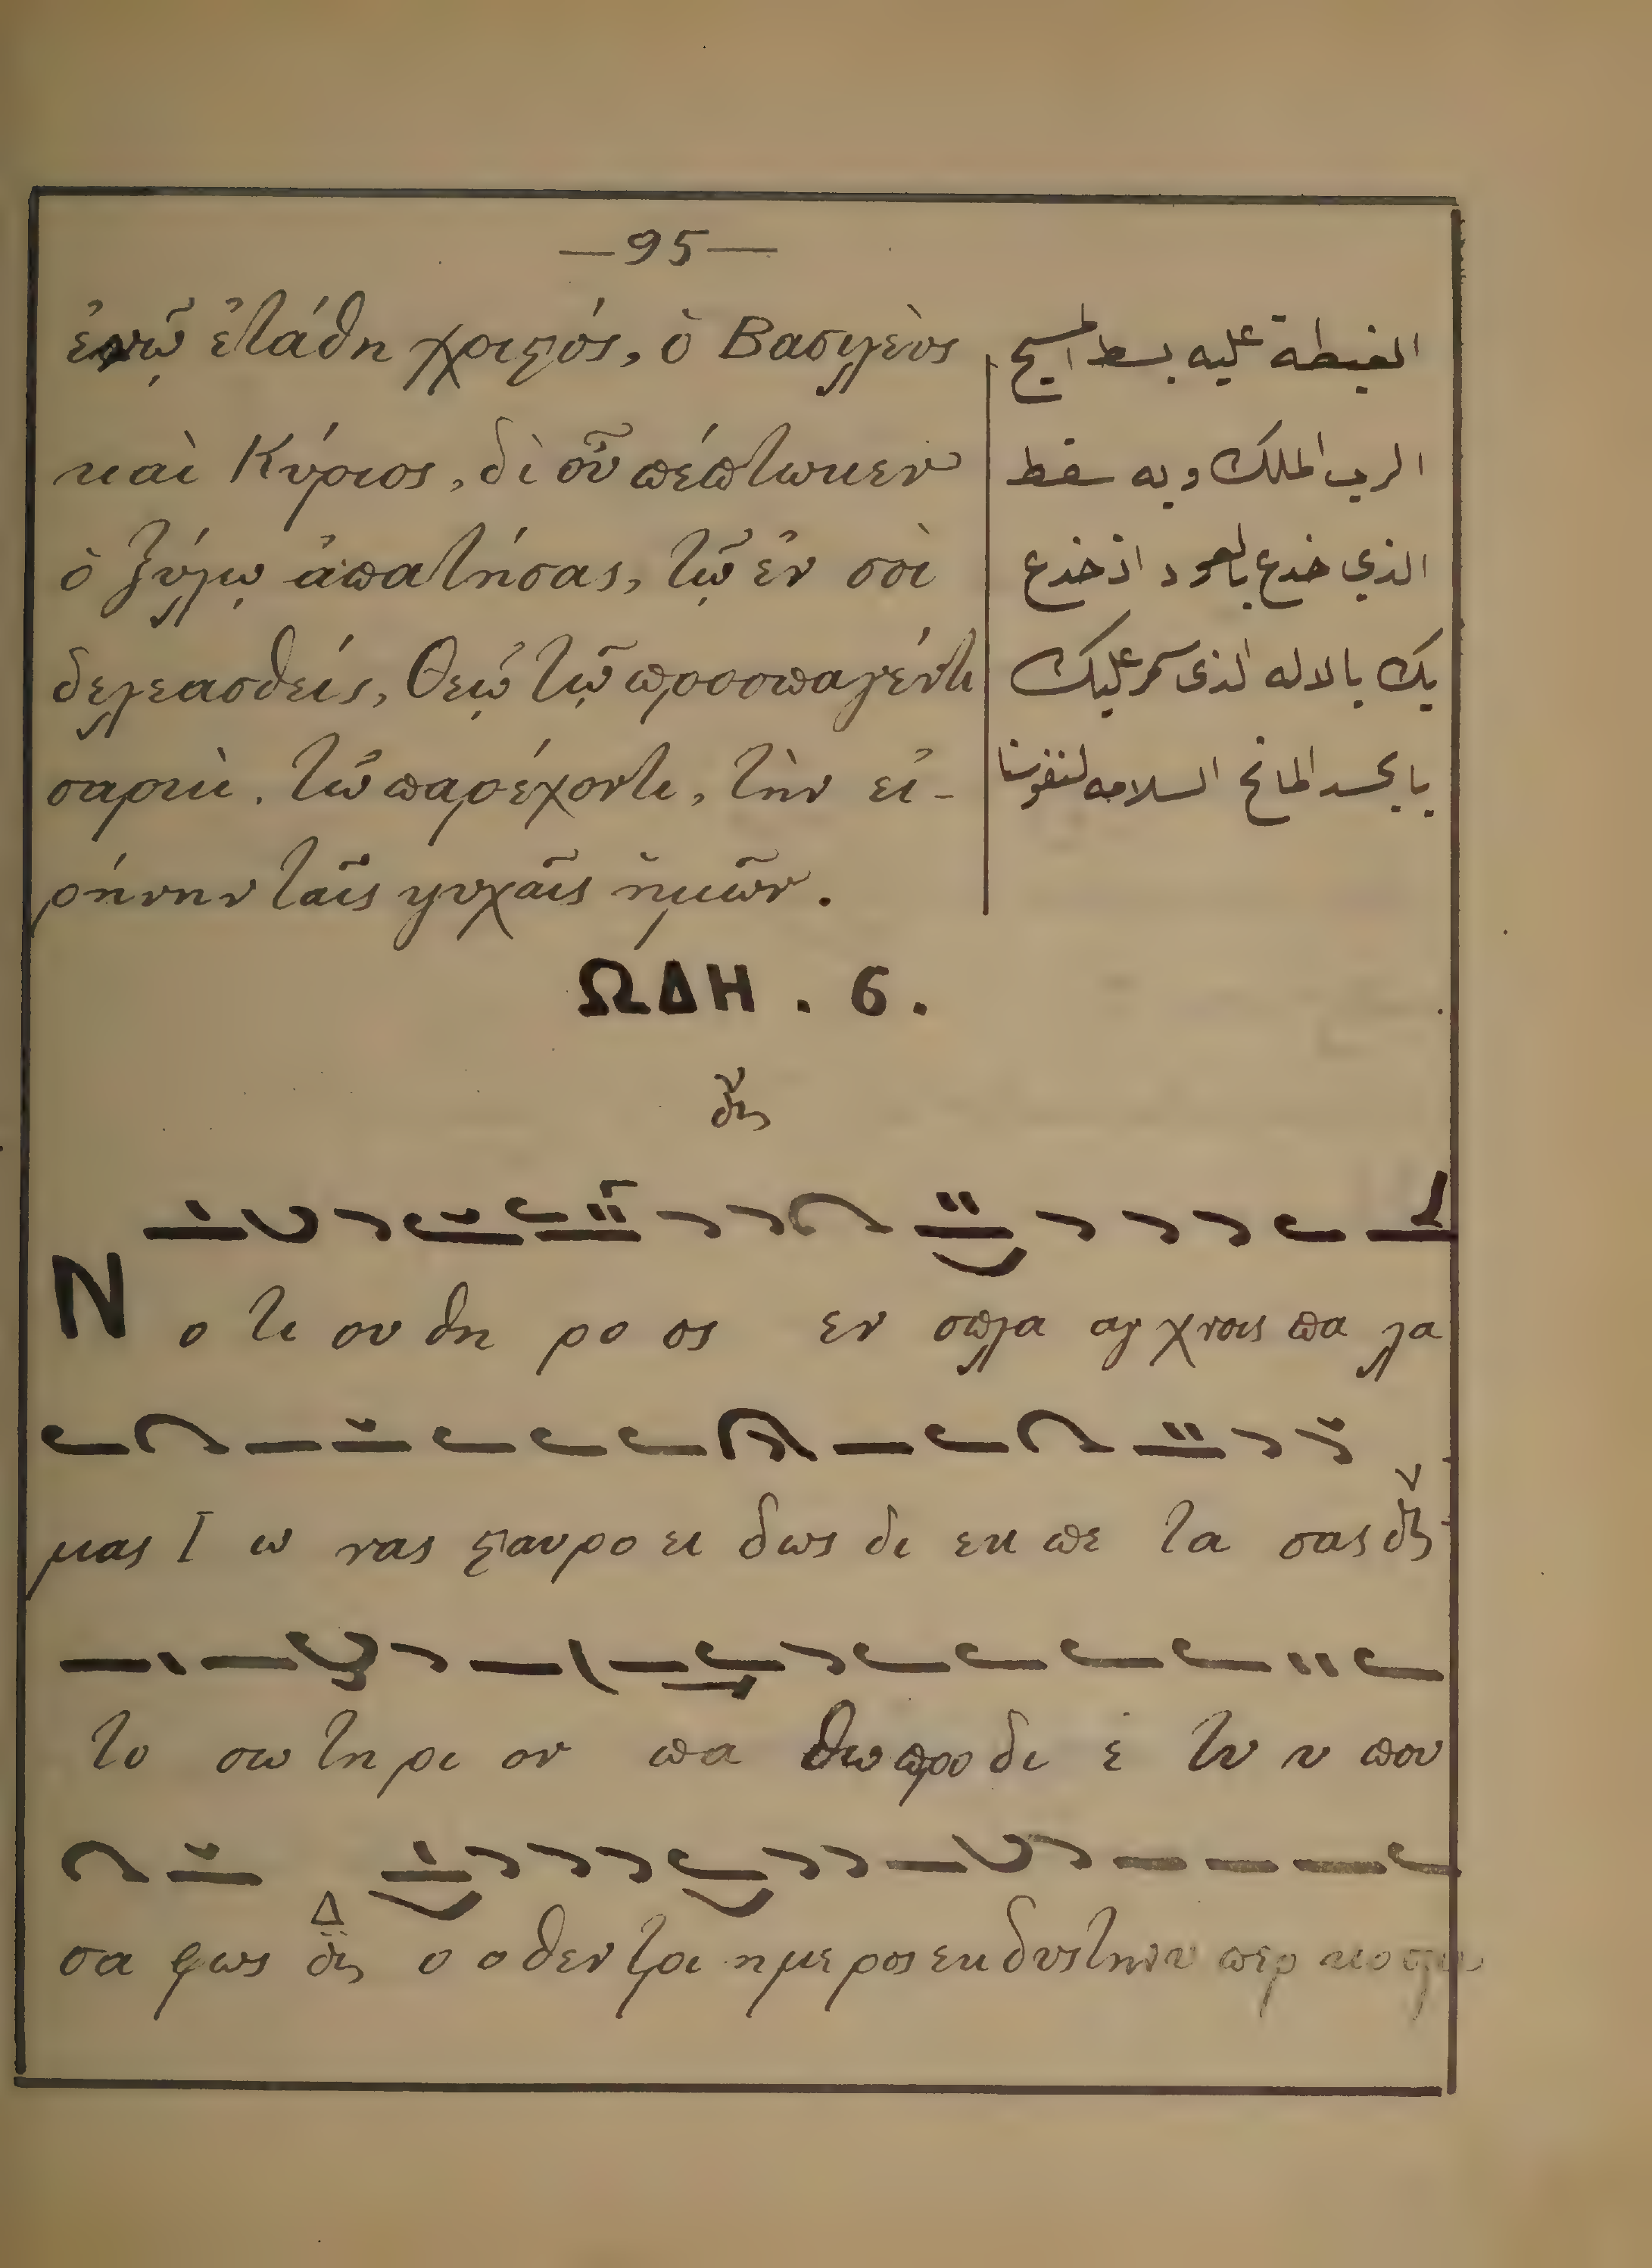 —95—
ἐν ᾧ ἐτάθη χριστός, ὁ Βασιλεὺς
καὶ Κύριος, δὶ οὗ πέπτωκεν
ὁ ξύλῳ ἀπατήσας, τῷ ἐν σοὶ
δελεασθείς, Θεῷ τῷ προσπαγέντι
σαρκὶ. τῷ παρέχοντι, τὴν εἰ-
ρήνην ταῖς ψυχαῖς ἡμῶν.
الغبطة عليه بسط المسيح
الرب الملك وبه سقط
الذي خدع بالعود اذ خدع
بك بالاله الذى سمر عليك
بالجسد المانح السلامه لنفوسنا
ΩΔΗ . 6 .
Ν ο τι ου θη ρο ος εν σπλα αγ χνοις πα λα
μας Ι ω νας σταυρο ει δως δι εκ πε τα σας
το σω τη ρι ον πα θω προ δι ε τυ υ που
σα φως ο ο θεν τρι η με ρος εκ δυς την υ περ κο σμι